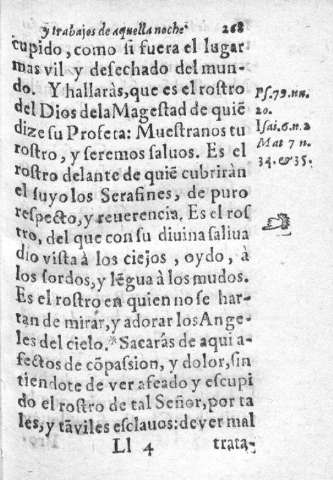 y trabajos de aquella noche 268
cupido, como si fuera el lugar
mas vil y desechado del mun-
do. Y hallaràs, que es el rostro
del Dios de la Magestad de quiẽ
dize su Profeta: Muestranos tu
rostro, y seremos saluos. Es el
rostro delante de quiẽ cubriràn
el suyo los Serafines, de puro
respecto, y reuerencia. Es el ros
tro, del que con su diuina saliua
dio vista à los ciejos, oydo, à
los sordos, y lẽgua à los mudos.
Es el rostro en quien no se har-
tan de mirar, y adorar los Ange-
les del cielo. Sacaràs de aqui a-
fectos de cõpassion, y dolor, sin
tiendote de ver afeado y escupi
do el rostro de tal Señor, por ta
les, y tãviles esclauos: de ver mal
Ll 4 trata-
Ps. 79. nu.
20.
Isai. 6. n. 2
Mat 7 n.
34. & 35.